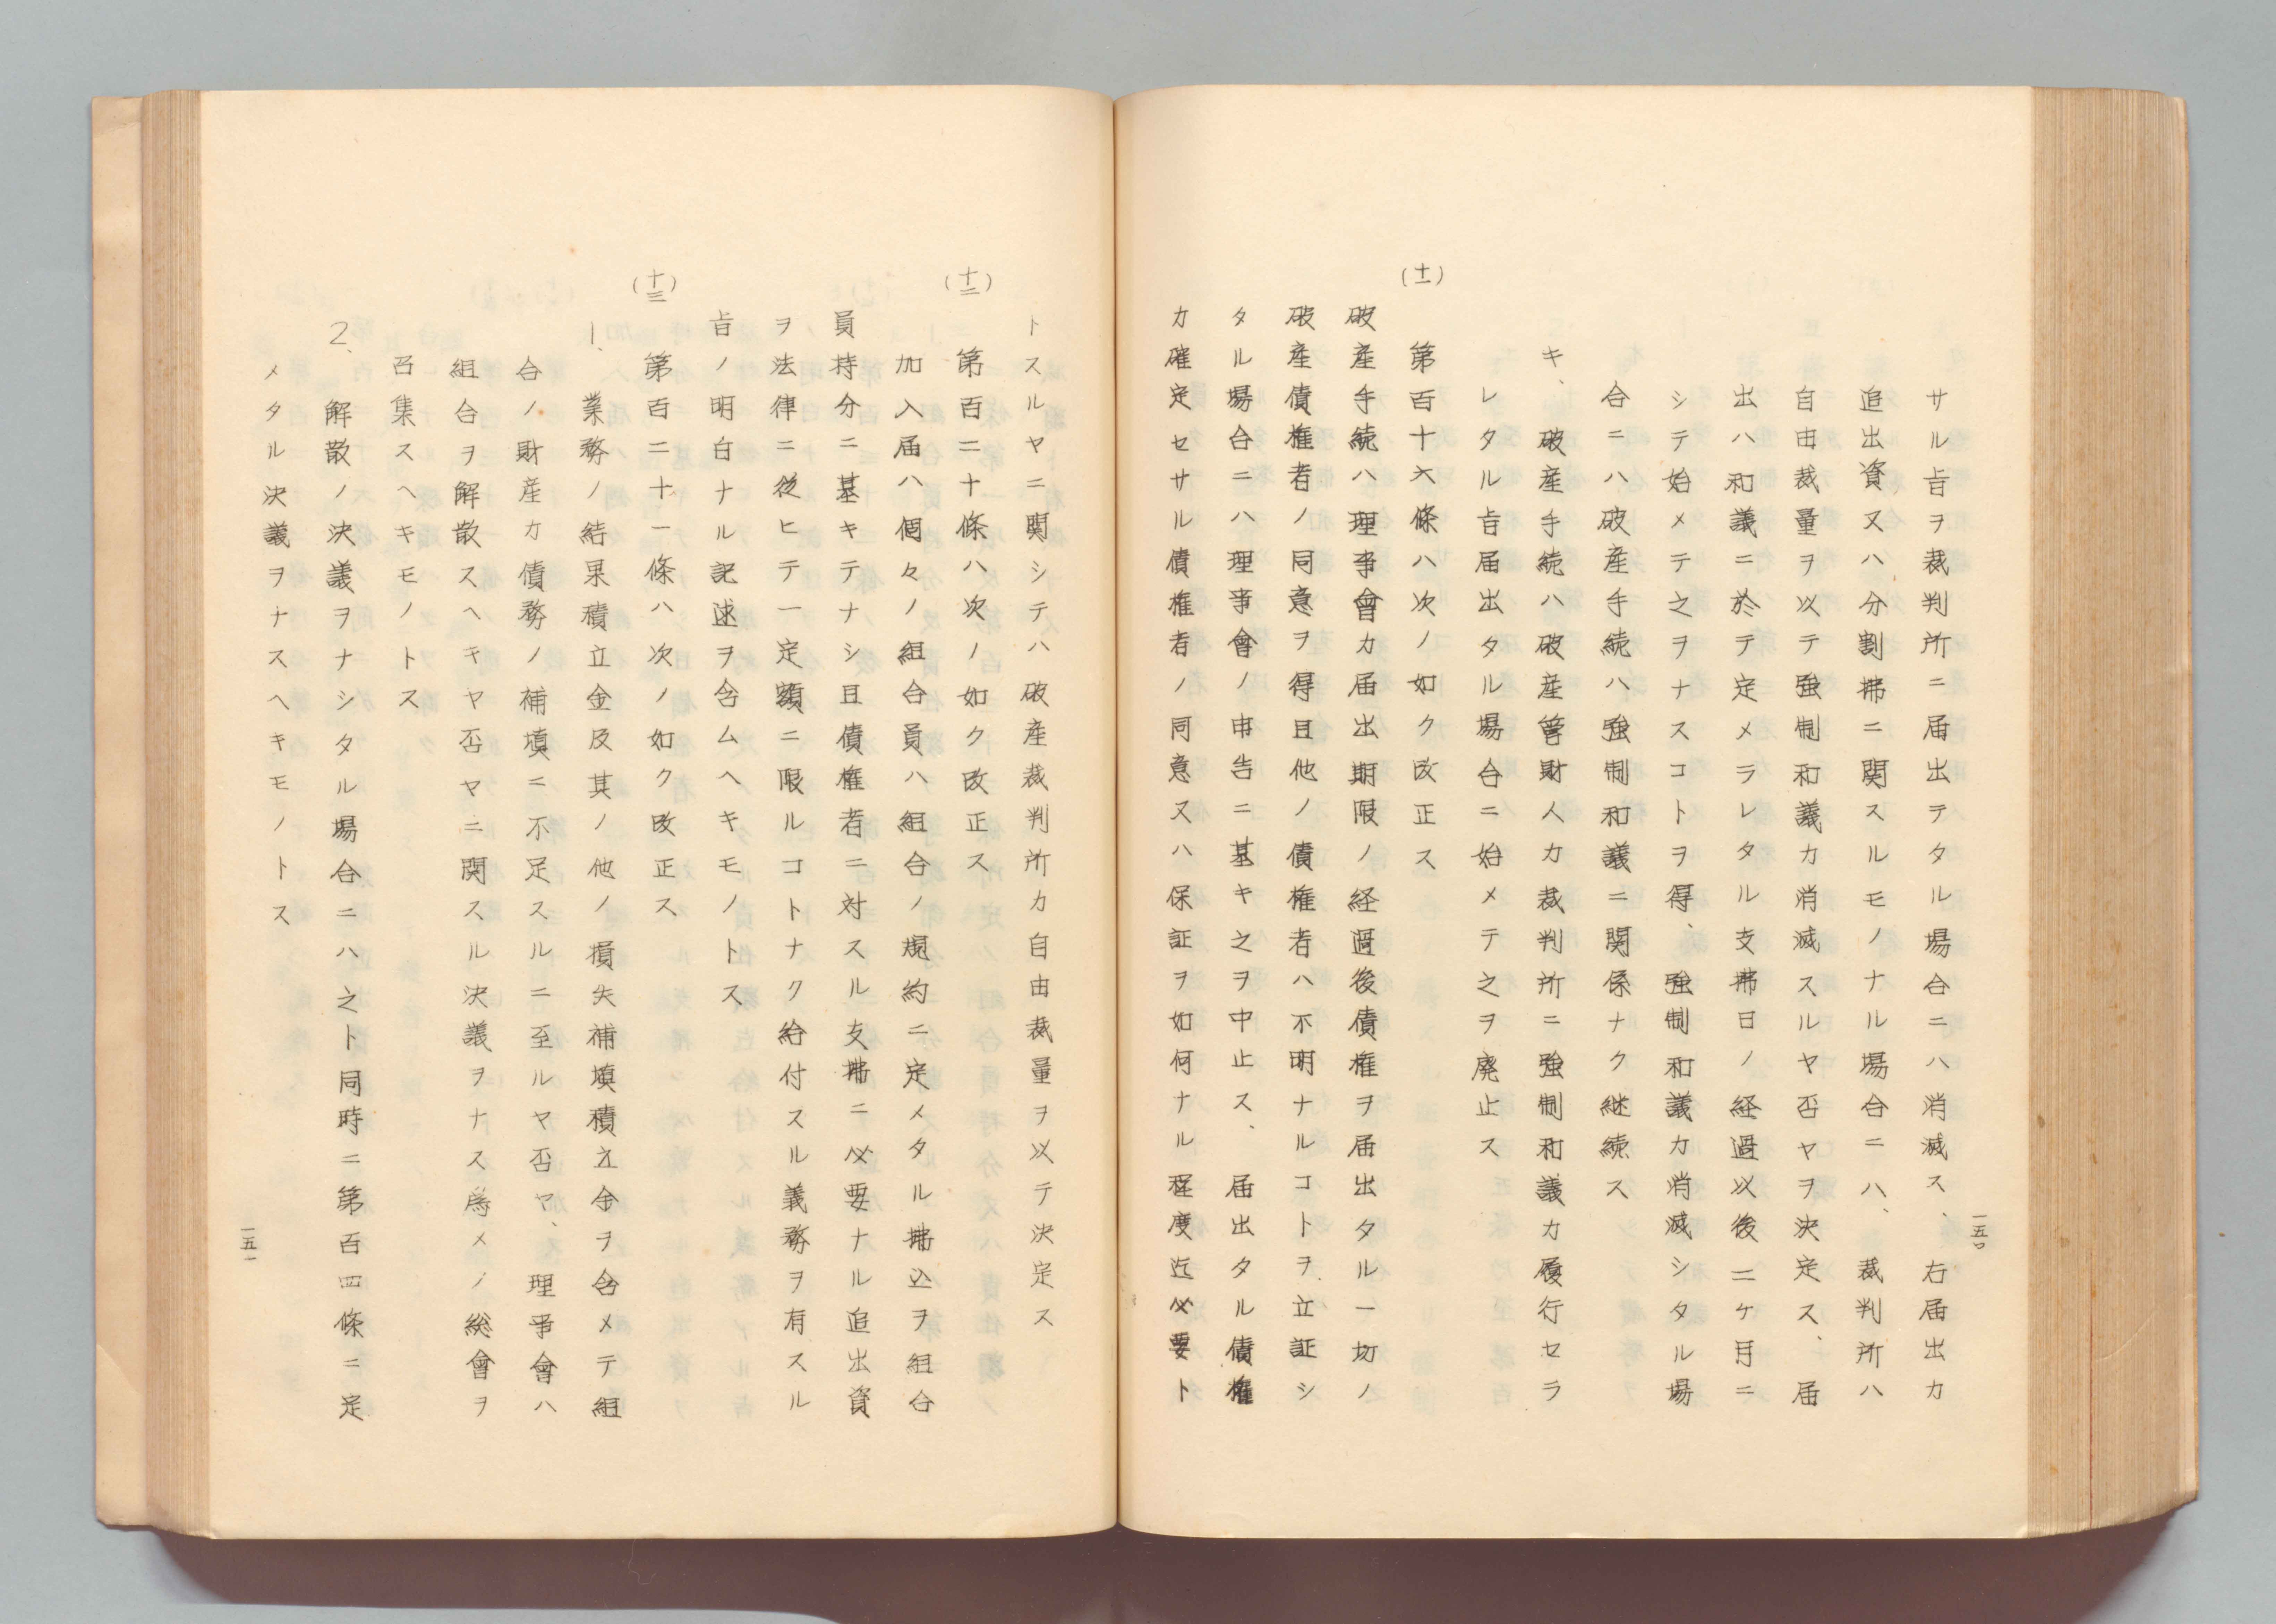 サル旨ヲ裁判所ニ届出テタル場合ニハ消滅ス、右届出カ
追出資又ハ分割拂ニ関スルモノナル場合ニハ、裁判所ハ
自由裁量ヲ以テ強制和議カ消滅スルヤ否ヤヲ決定ス、届
出ハ和議ニ於テ定メラレタル支拂日ノ経過以後二ケ月ニ
シテ始メテ之ヲナスコトヲ得、強制和議カ消滅シタル場
合ニハ破産手続ハ強制和議ニ関係ナク継続ス
キ、破産手続ハ破産管財人カ裁判所ニ強制和議カ履行セラ
レタル旨届出タル場合ニ始メテ之ヲ廃止ス
(十一)
第百十六條ハ次ノ如ク改正ス
破産手続ハ理事會カ届出期限ノ経過後債権ヲ届出タル一切ノ
破産債権者ノ同意ヲ得且他ノ債権者ハ不明ナルコトヲ立証シ
タル場合ニハ理事會ノ申告ニ基キ之ヲ中止ス、届出タル債権
カ確定セサル債権者ノ同意又ハ保証ヲ如何ナル程度迄必要ト
一五〇
トスルヤニ関シテハ破産裁判所カ自由裁量ヲ以テ決定ス
(十二)
第百二十條ハ次ノ如ク改正ス
加入届ハ個々ノ組合員ハ組合ノ規約ニ定メタル拂込ヲ組合
員持分ニ基キテナシ且債権者ニ対スル支拂ニ必要ナル追出資
ヲ法律ニ從ヒテ一定額ニ限ルコトナク給付スル義務ヲ有スル
旨ノ明白ナル記述ヲ含ムヘキモノトス
(十三)
第百二十一條ハ次ノ如ク改正ス
1、業務ノ結果積立金及其ノ他ノ損失補填積立金ヲ含メテ組
合ノ財産カ債務ノ補填ニ不足スルニ至ルヤ否ヤ、理事會ハ
組合ヲ解散スヘキヤ否ヤニ関スル決議ヲナス為メノ総會ヲ
召集スヘキモノトス
2、解散ノ決議ヲナシタル場合ニハ之ト同時ニ第百四條ニ定
メタル決議ヲナスヘキモノトス
一五一